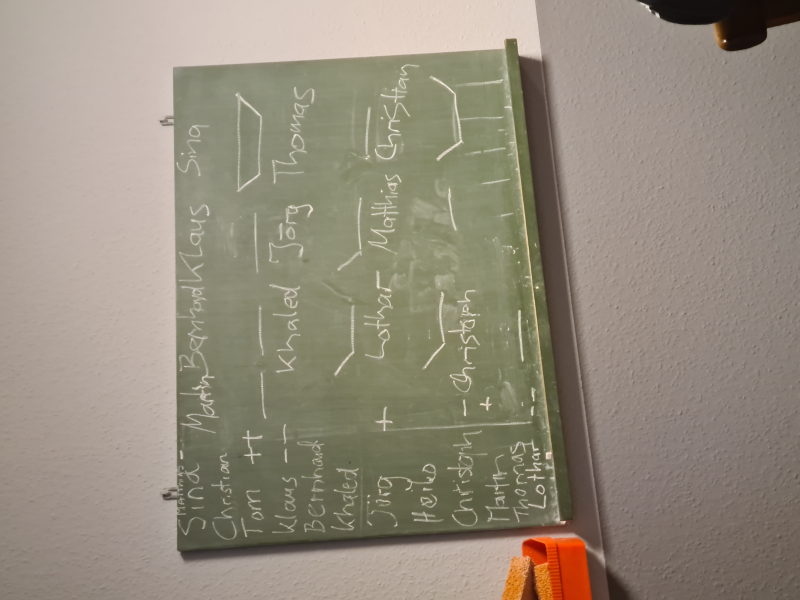 Sina -
Christian
Tom ++
Klaus --
Bernhard
Khaled
Jörg +
Heiko
Christoph -
Martin +
Thomas
Lothar --
Martin Bernhard Klaus Sina
Khaled Jörg Thomas
Lothar Matthias Christian
Christoph